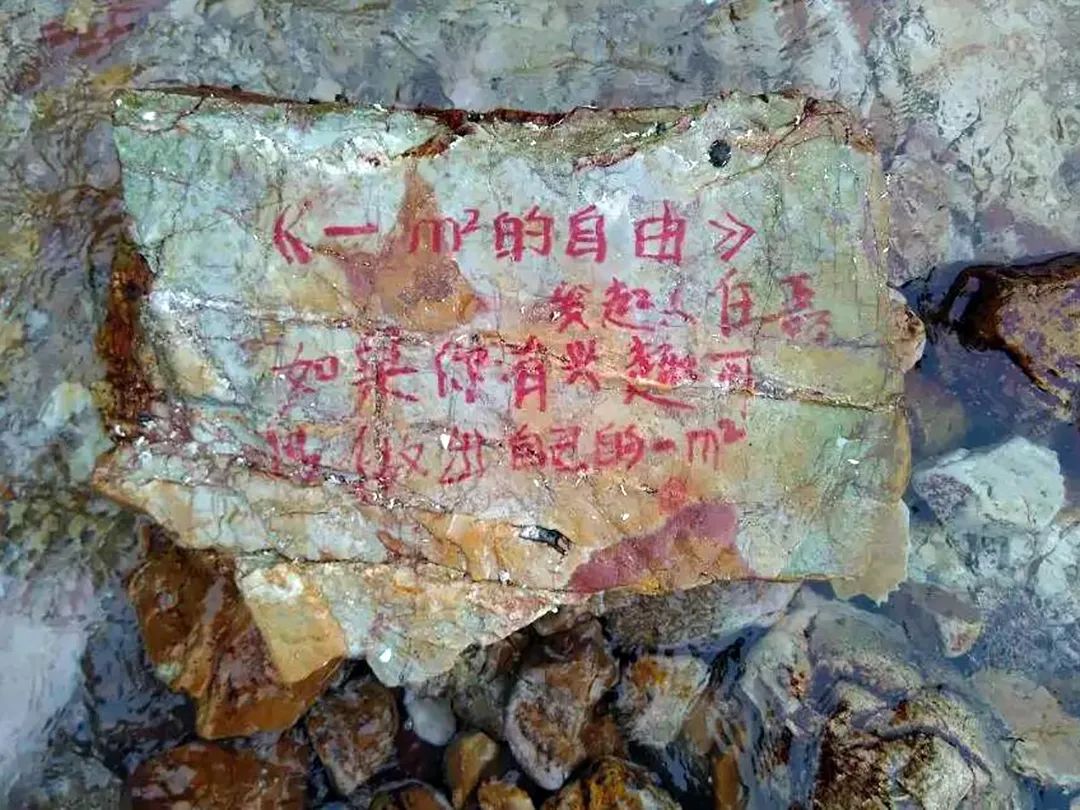 《一m²的自由》
发起人
如果你有兴趣可
以做出自己的一m²